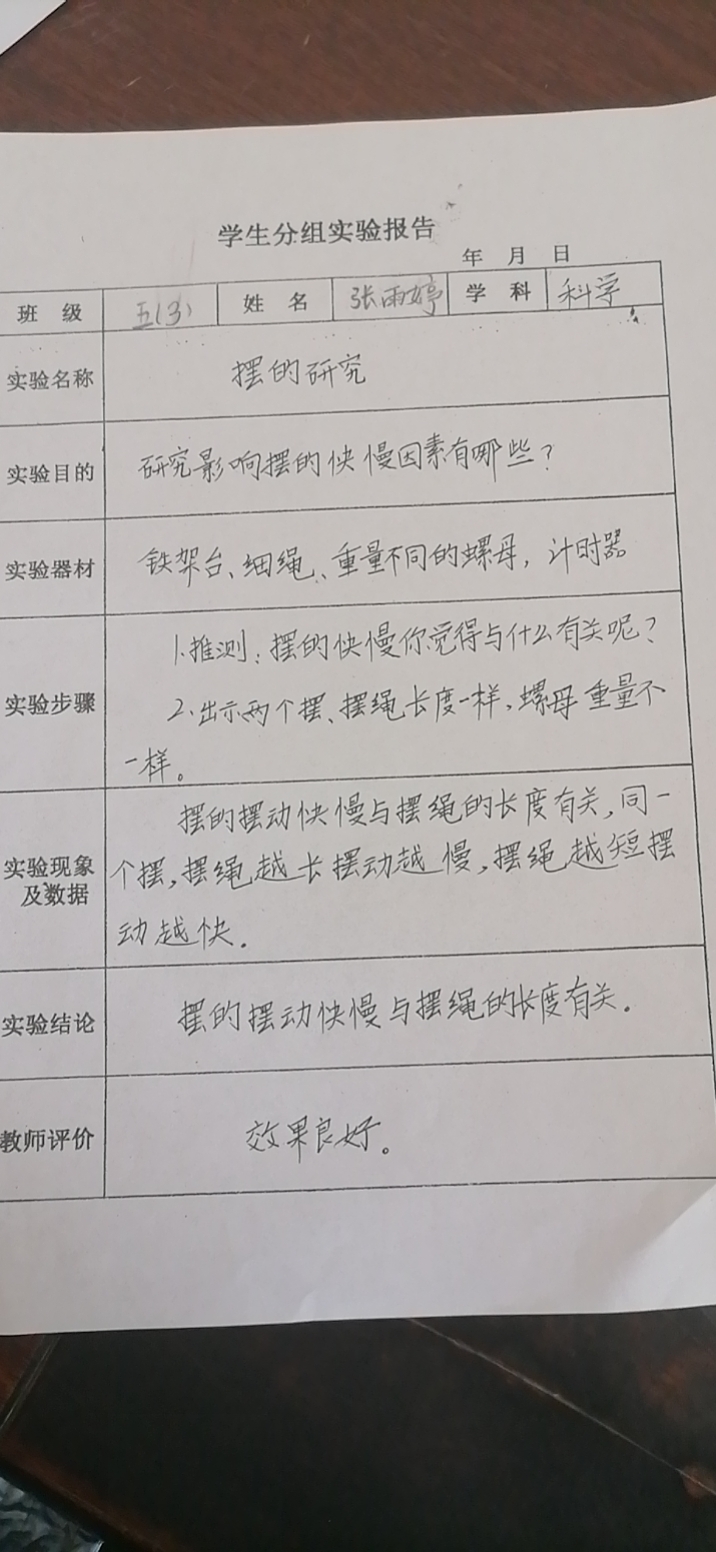 学生分组实验报告
年 月 日
班 级 五(3) 姓 名 张雨婷 学 科 科学
实验名称 摆的研究
实验目的 研究影响摆的快慢因素有哪些?
实验器材 铁架台、细绳、重量不同的螺母,计时器
实验步骤
1.推测:摆的快慢你觉得与什么有关呢?
2.出示两个摆、摆绳长度一样,螺母重量不
一样。
实验现象
及数据
摆的摆动快慢与摆绳的长度有关,同一
个摆,摆绳越长摆动越慢,摆绳越短摆
动越快.
实验结论 摆的摆动快慢与摆绳的长度有关.
教师评价 效果良好。